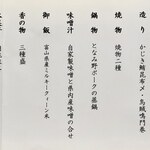 造り　かじき鮪昆布〆・烏賊鳴門巻
焼物　焼物二種
鍋物　となみ野ポークの蒸鍋
味噌汁　自家製味噌と県内産味噌の合せ
御飯　富山県産ミルキークィーン米
香の物　三種盛